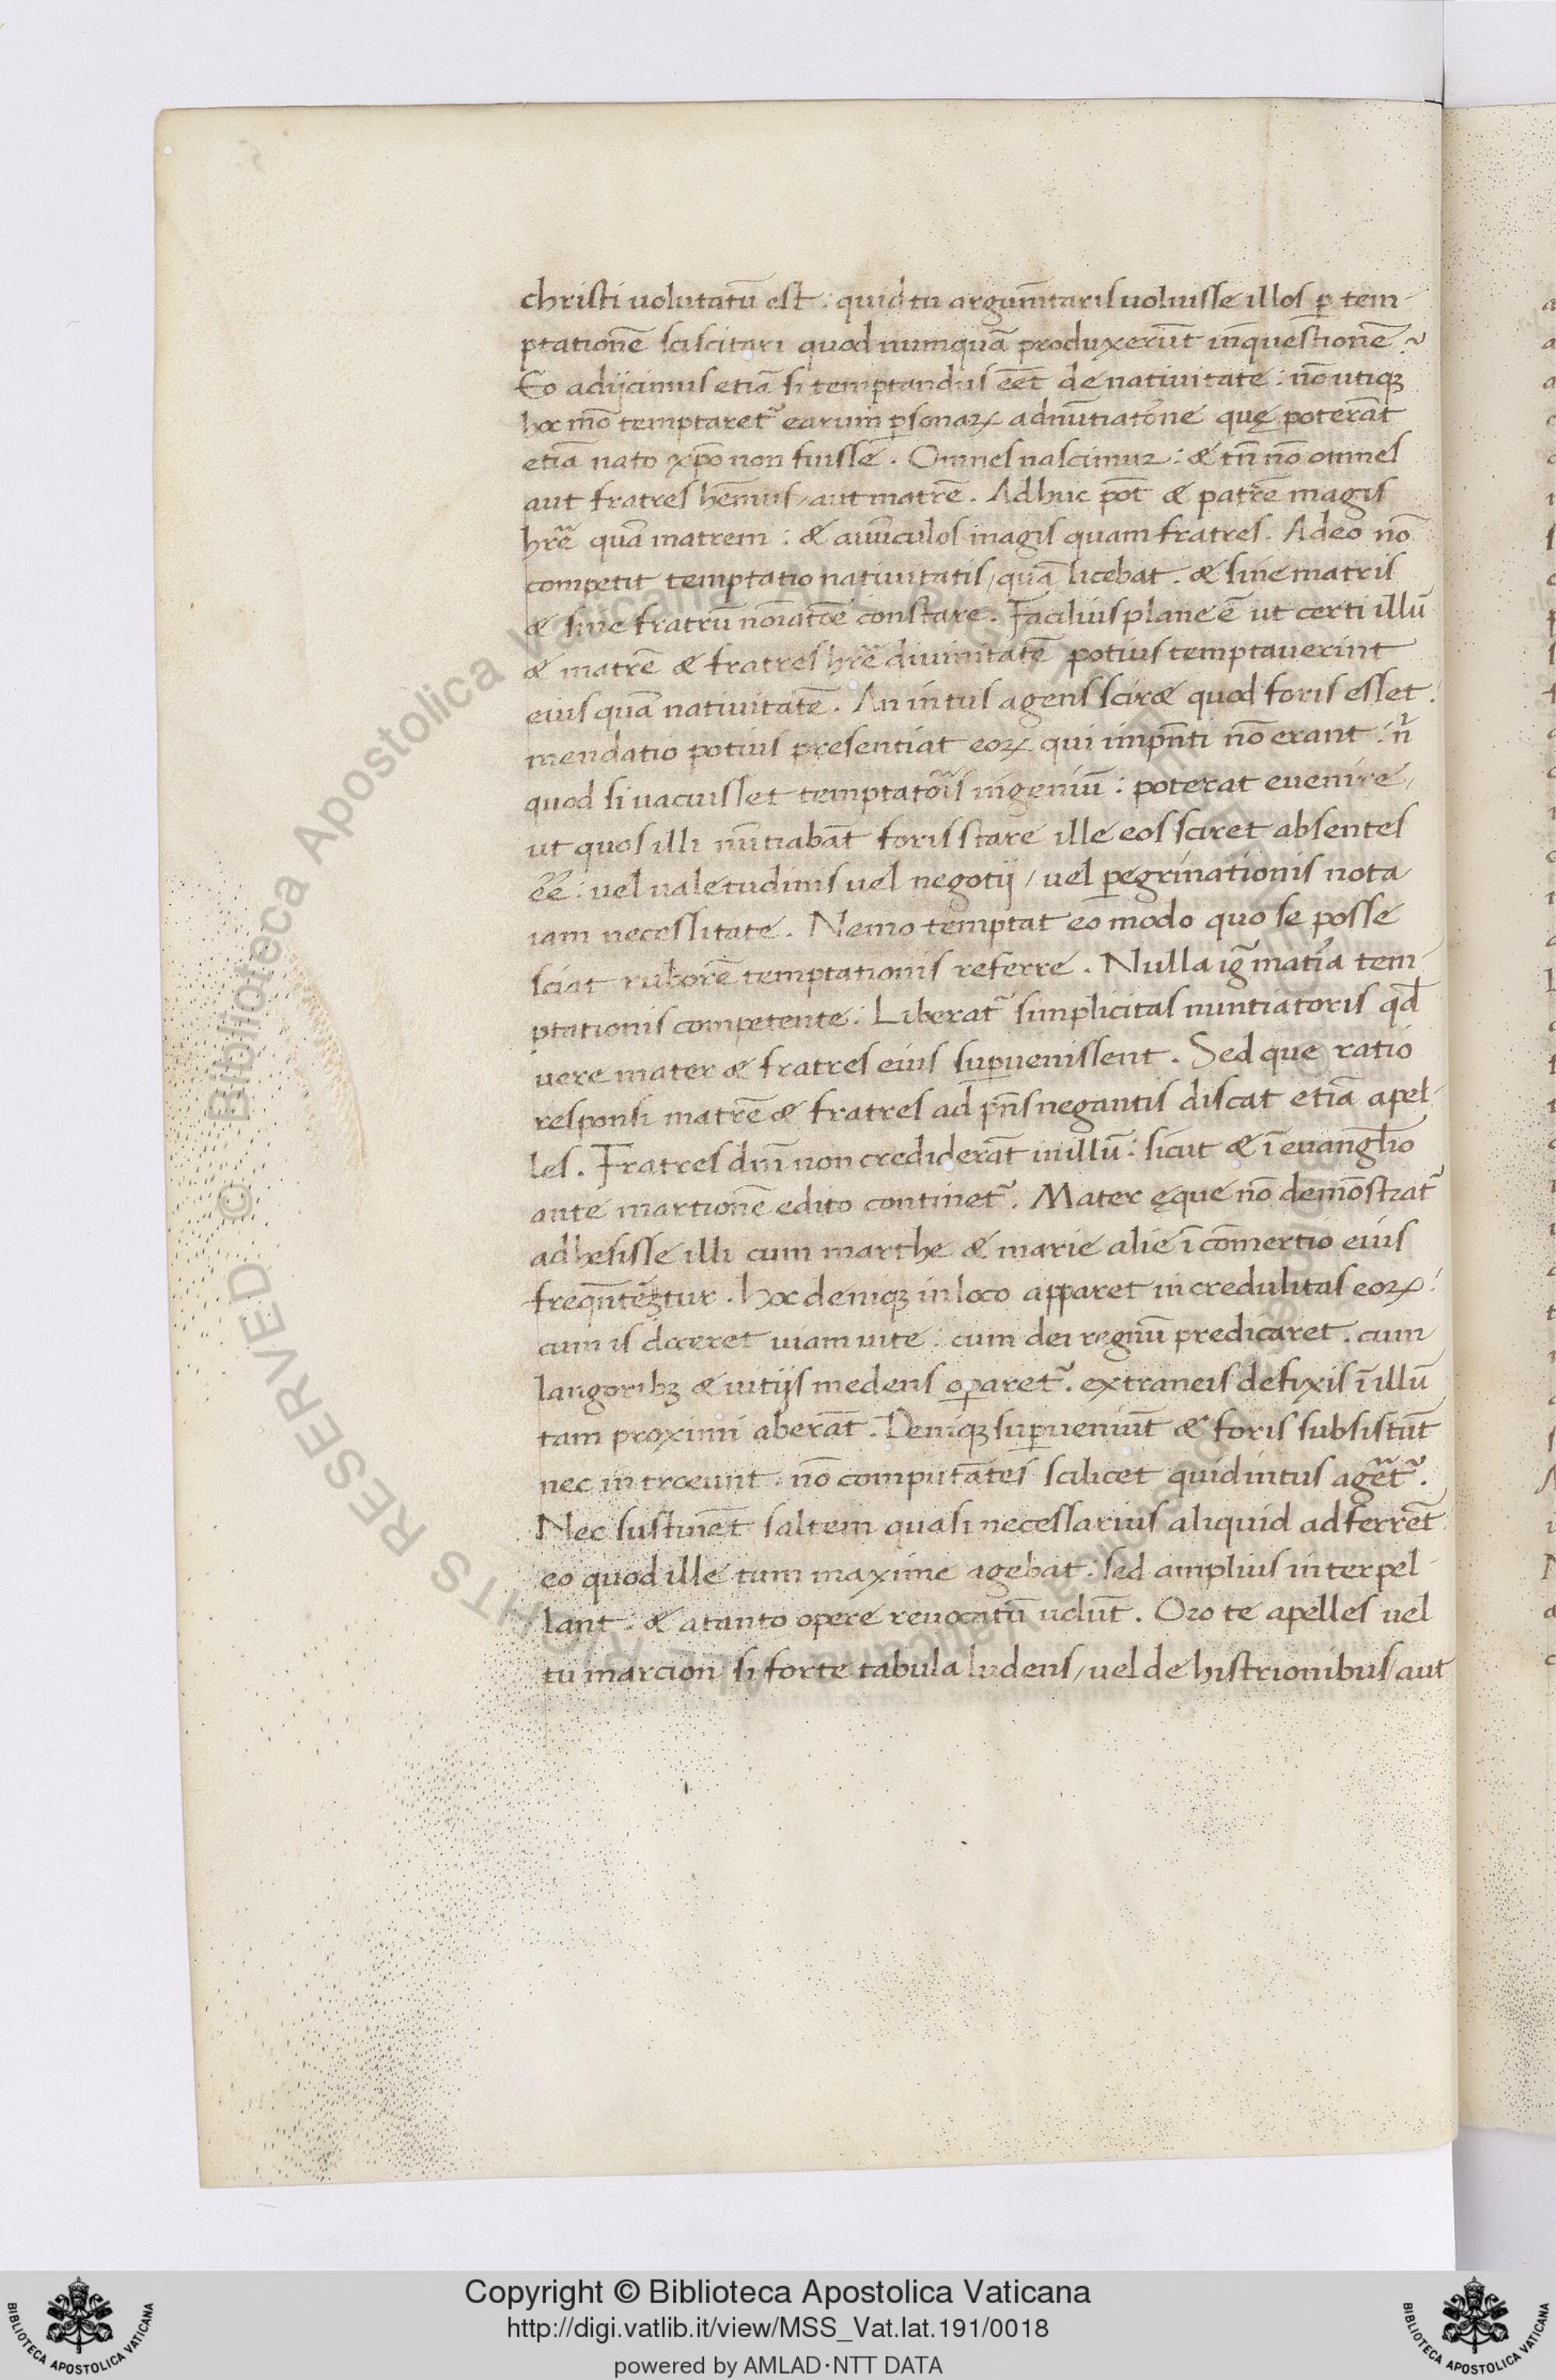 christi volutatū est : quid tu argum̄taris voluisse illos ꝑ tem-
ptationē sciscitari quod numquā produxerūt in questionē?
Eo adijcimus etiā si temptandus eēt de nativitate : nō utiqꝫ
hoc mō temptaretᷣ earum ꝑsonaꝝ adnūtiatōne quę poterāt
etiā nato xp̄o non fuisse . Omnes nascimur : & tn̄ nō omnes
aut fratres hēmus / aut matrē . Adhuc pōt & patrē magis
hr̄e quā matrem : & avūculos magis quam fratres . Adeo nō
competit temptatio nativitatis / quā licebat . & sine matris
& sine fratrū noīatōe constare . Facilius plane ē ut certi illū
& matrē & fratres hr̄e divinitatē potius temptaverint
eius quā nativitatē . An intus agens sciret quod foris esset .
mendatio potius presentiat eoꝝ qui imp̄nti nō erant : n̄
quod si vacuisset temptatōis ingeniū : poterat evenire /
ut quos illi nūtiabāt foris stare ille eos sciret absentes
eē : vel valetudinis vel negotij / vel ꝑegrinationis nota
iam necessitate . Nemo temptat eo modo quo se posse
sciat ruborē temptationis referre . Nulla ig̃ matīa tem-
ptationis competente : Liberatᷣ simplicitas nuntiatoris qd̄
vere mater & fratres eius suꝑvenissent . Sed que ratio
responsi matrē & fratres ad p̄ns negantis discat etiā apel-
les . Fratres dn̄i non crediderāt in illū : sicut & ī evangl̄io
ante martionē edito continetᷣ . Mater ęque nō demōstratᷣ
adhesisse illi cum marthe & marie alie ī cōmertio eius
freqn̄tentur . hoc deniqꝫ in loco apparet incredulitas eoꝝ :
cum is doceret viam vite : cum dei regnū predicaret . cum
langoribꝫ & vitijs medens oꝑaretᷣ . extraneis defixis ī illū
tam proximi aberāt . Deniqꝫ suꝑveniūt & foris subsistūt
nec introeunt . nō computātes scilicet quid intus agēt᷑ .
Nec sustinēt saltem quasi necessarius aliquid adferrēt
eo quod ille tum maxime agebat : sed amplius interpel-
lant : & a tanto opere revocatū volūt . Oro te apelles vel
tu marcion si forte tabula ludens / vel de histrionibus / aut
Copyright © Biblioteca Apostolica Vaticana
http://digi.vatlib.it/view/MSS_Vat.lat.191/0018
powered by AMLAD·NTT DATA